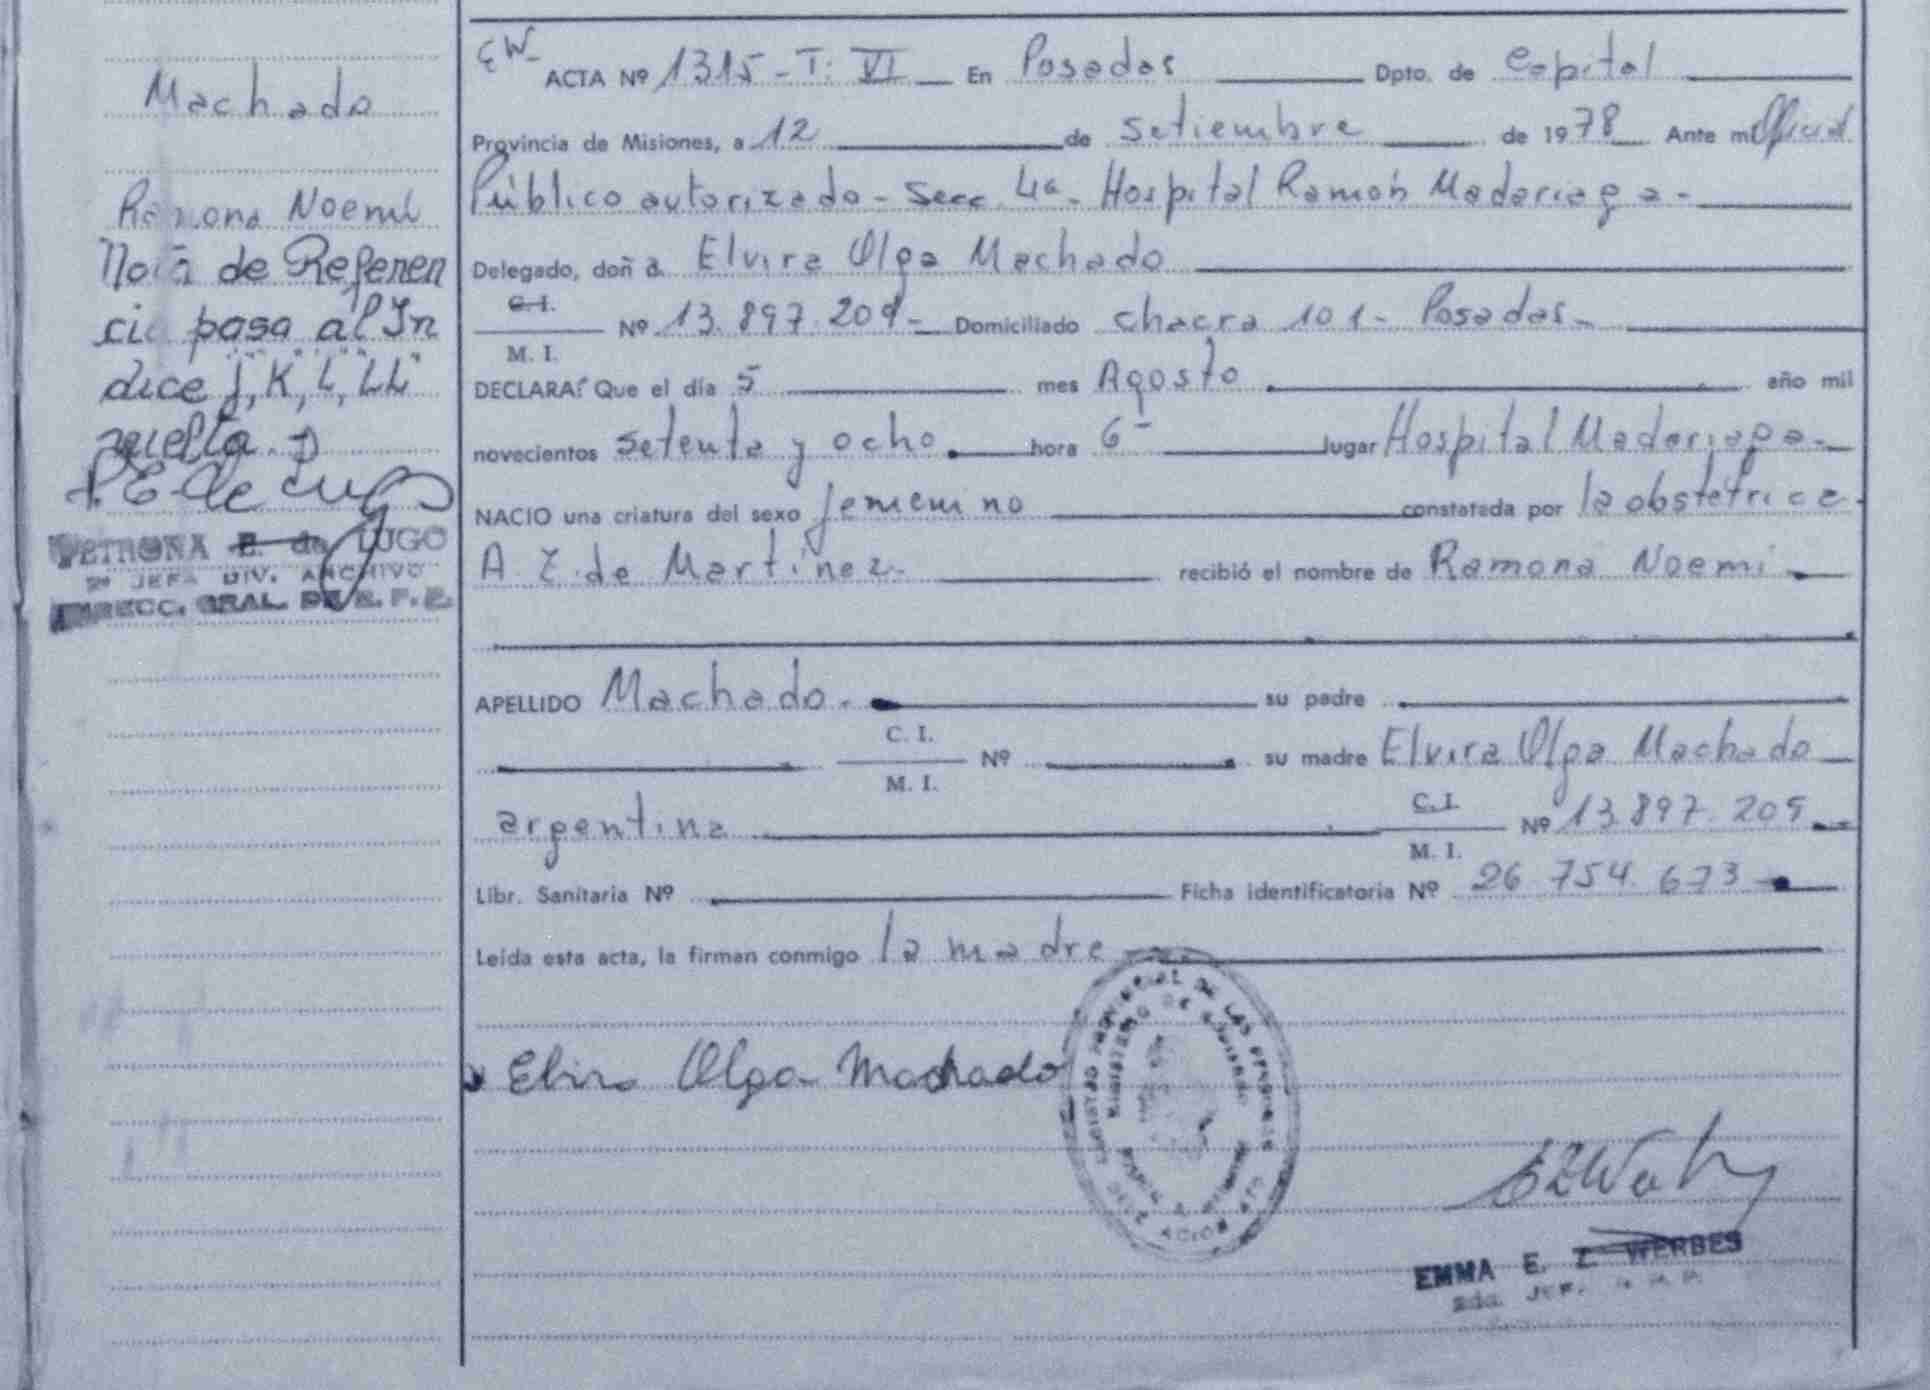 Machado
Ramona Noemi
Nota de Referen
cia pasa al In
dice J, K, L, LL
vuelta.
P. E. de Lugo
PETRONA E. de LUGO
2º JEFA DIV. ARCHIVO
DIRECC. GRAL. DE R. P. P.
EW-
ACTA Nº 1315 - T: VI En Posadas Dpto. de Capital
Provincia de Misiones, a 12 de setiembre de 1978 Ante mi Oficial
Público autorizado - Secc. 4a - Hospital Ramón Madariaga -
Delegado, doñ a Elvira Olga Machado
C. I.
M. I. Nº 13.897.209 - Domiciliado chacra 101 - Posadas -
DECLARA: Que el día 5 mes Agosto año mil
novecientos setenta y ocho. hora 6 - lugar Hospital Madariaga -
NACIO una criatura del sexo femenino constatada por la obstétrica
A. Z. de Martinez - recibió el nombre de Ramona Noemi
APELLIDO Machado. su padre
C. I.
M. I. Nº su madre Elvira Olga Machado
argentina C. I.
M. I. Nº 13.897.209
Libr. Sanitaria Nº Ficha identificatoria Nº 26.754.673
Leída esta acta, la firman conmigo la madre
Elvira Olga Machado
REGISTRO PROVINCIAL DE LAS PERSONAS
MINISTERIO DE
EMMA E. Z. WERBES
2da. JEF.